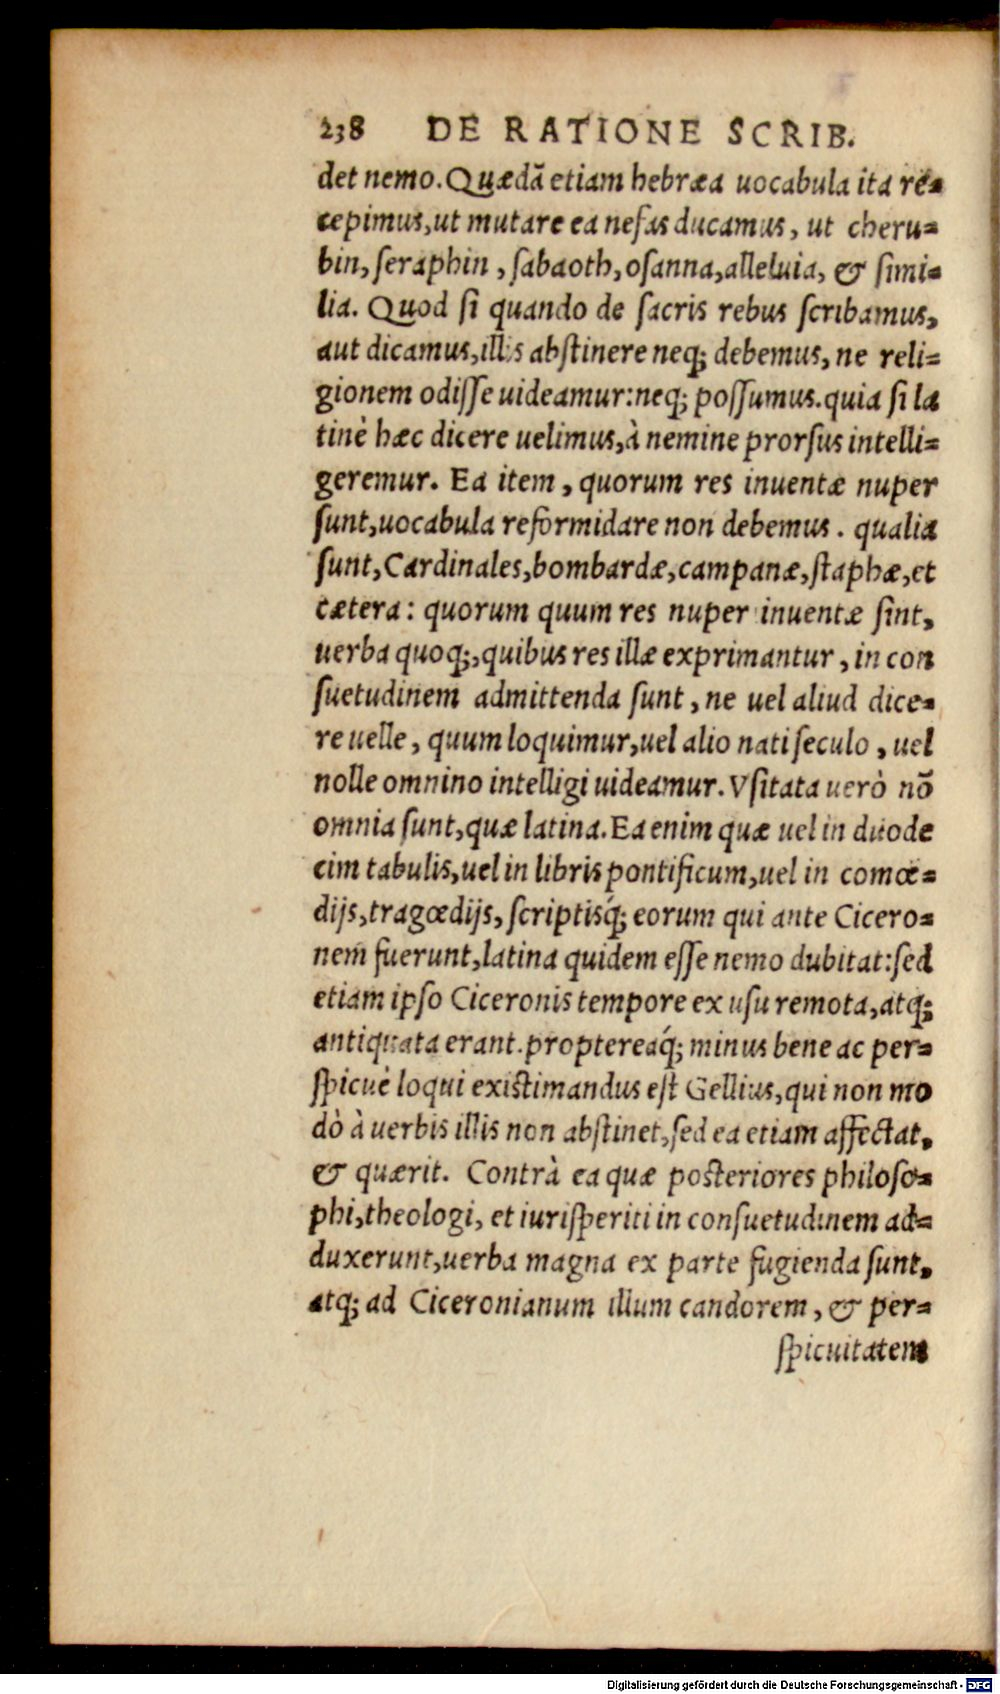 238 DE RATIONE SCRIB.
det nemo. Quædã etiam hebræa uocabula ita re-
cepimus, ut mutare ea nefas ducamus, ut cheru-
bin, seraphin, sabaoth, osanna, alleluia, & simi-
lia. Quod si quando de sacris rebus scribamus,
aut dicamus, illis abstinere neq; debemus, ne reli-
gionem odisse uideamur: neq; possumus. quia si la
tinè hæc dicere uelimus, à nemine prorsus intelli-
geremur. Ea item, quorum res inuentæ nuper
sunt, uocabula reformidare non debemus. qualia
sunt, Cardinales, bombardæ, campanæ, staphæ, et
cætera: quorum quum res nuper inuentæ sint,
uerba quoq;, quibus res illæ exprimantur, in con
suetudinem admittenda sunt, ne uel aliud dice-
re uelle, quum loquimur, uel alio nati seculo, uel
nolle omnino intelligi uideamur. Vsitata uerò nõ
omnia sunt, quæ latina. Ea enim quæ uel in duode
cim tabulis, uel in libris pontificum, uel in comœ-
dijs, tragœdijs, scriptisq́; eorum qui ante Cicero-
nem fuerunt, latina quidem esse nemo dubitat: sed
etiam ipso Ciceronis tempore ex usu remota, atq;
antiquata erant. proptereaq́; minus bene ac per-
spicuè loqui existimandus est Gellius, qui non mo
dò à uerbis illis non abstinet, sed ea etiam affectat,
& quærit. Contrà ea quæ posteriores philoso-
phi, theologi, et iurisperiti in consuetudinem ad-
duxerunt, uerba magna ex parte fugienda sunt,
atq; ad Ciceronianum illum candorem, & per-
spicuitatem
Digitalisierung gefördert durch die Deutsche Forschungsgemeinschaft - DFG